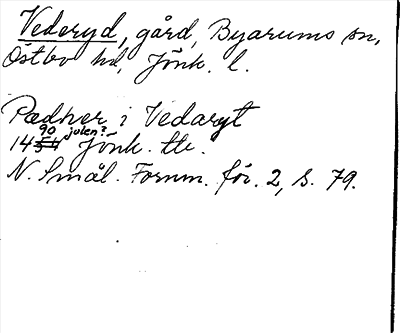 Vederyd, gård, Byarums sn,
Östbo hd, Jönk. l.
Pædher i Vedaryt
90 julen?
1454 Jönk. tb.
N. Smål. Fornm. för. 2, s. 79.